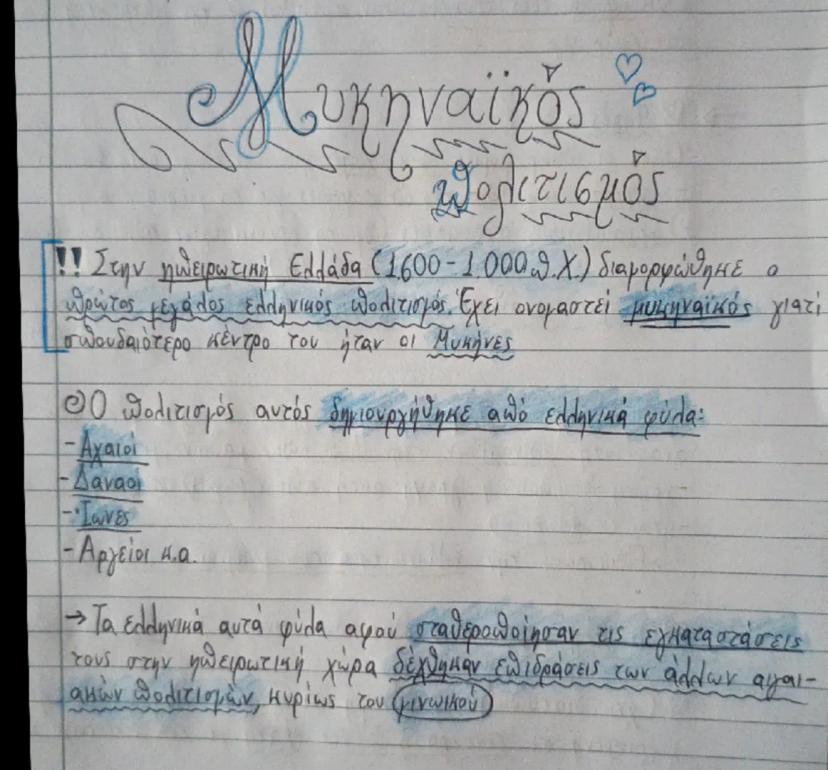 Μυκηναϊκός
πολιτισμός
!! Στην ηπειρωτική Ελλάδα (1600-1.000π.Χ.) διαμορφώθηκε ο
πρώτος μεγάλος ελληνικός πολιτισμός. Έχει ονομαστεί μυκηναϊκός γιατί
σπουδαιότερο κέντρο του ήταν οι Μυκήνες
Ο πολιτισμός αυτός δημιουργήθηκε από ελληνικά φύλα:
- Αχαιοί
- Δαναοί
- Ίωνες
- Αργείοι κ.α.
→ Τα ελληνικά αυτά φύλα αφού σταθεροποίησαν τις εγκαταστάσεις
τους στην ηπειρωτική χώρα δέχθηκαν επιδράσεις των άλλων αιγαι-
ακών πολιτισμών, κυρίως του μινωικού